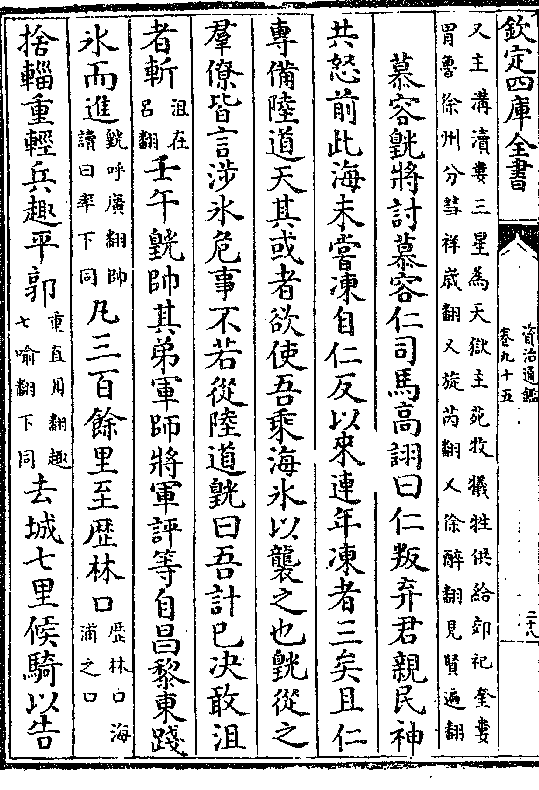 欽定四庫全書
資治通鑑
卷九十五
二十八
又主溝瀆婁三星為天獄主苑牧犧牲供給郊祀奎婁
胃魯徐州分彗祥歲翻又旋芮翻又徐醉翻見賢遍翻
慕容皝將討慕容仁司馬高詡曰仁叛弃君親民神
共怒前此海未嘗凍自仁反以來連年凍者三矣且仁
專備陸道天其或者欲使吾乘海氷以襲之也皝從之
羣僚皆言涉氷危事不若從陸道皝曰吾計已决敢沮
者斬沮在呂翻壬午皝帥其弟軍師將軍評等自昌黎東踐
氷而進皝呼廣翻帥讀曰率下同凡三百餘里至歴林口歴林口海浦之口
捨輜重輕兵趣平郭重直用翻趣七喻翻下同去城七里候騎以告